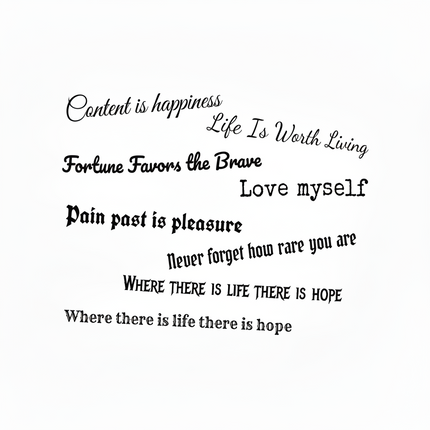 Content is happiness
Life Is Worth Living
Fortune Favors the Brave
Love myself
Pain past is pleasure
Never forget how rare you are
WHERE THERE IS LIFE THERE IS HOPE
Where there is life there is hope